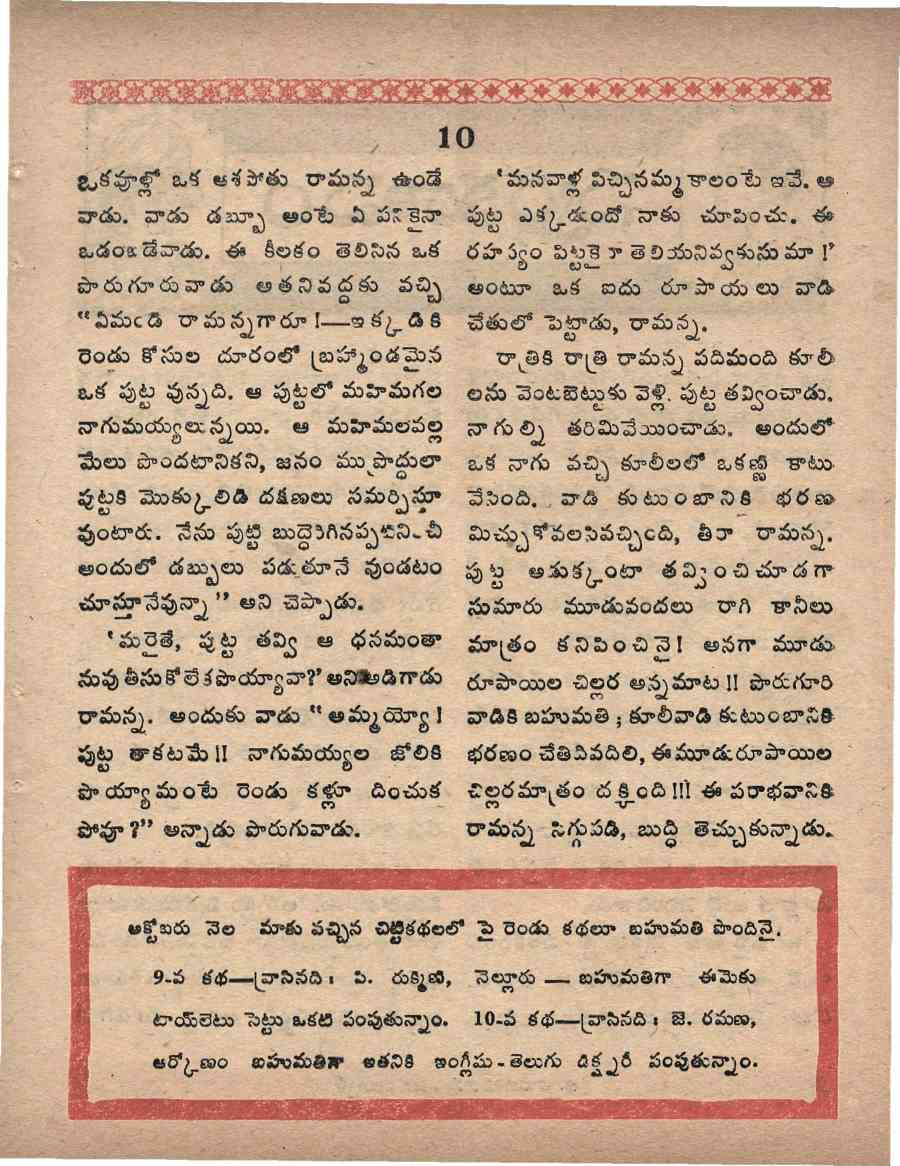 10
ఒకవూళ్లో ఒక ఆశపోతు రామన్న ఉండే
వాడు. వాడు డబ్బూ అంటే ఏ పనికైనా
ఒడంబడేవాడు. ఈ కీలకం తెలిసిన ఒక
పొరుగూరువాడు అతనివద్దకు వచ్చి
“ఏమండి రామన్నగారూ !—ఇక్కడికి
రెండు కోసుల దూరంలో బ్రహ్మాండమైన
ఒక పుట్ట వున్నది. ఆ పుట్టలో మహిమగల
నాగుమయ్యలున్నయి. ఆ మహిమలవల్ల
మేలు పొందటానికని, జనం ముప్రొద్దులా
పుట్టకి మొక్కులిడి దక్షణలు సమర్పిస్తూ
వుంటారు. నేను పుట్టి బుద్ధెరిగినప్పటినించీ
అందులో డబ్బులు పడుతూనే వుండటం
చూస్తూనేవున్నా” అని చెప్పాడు.
‘మరైతే, పుట్ట తవ్వి ఆ ధనమంతా
నువు తీసుకోలేకపొయ్యావా?’ అని అడిగాడు
రామన్న. అందుకు వాడు “అమ్మయ్యో !
పుట్ట తాకటమే !! నాగుమయ్యల జోలికి
పొయ్యామంటే రెండు కళ్లూ దించుక
పోవూ ?” అన్నాడు పొరుగువాడు.
‘మనవాళ్ల పిచ్చినమ్మకాలంటే ఇవే. ఆ
పుట్ట ఎక్కడుందో నాకు చూపించు. ఈ
రహస్యం పిట్టకైనా తెలియనివ్వకుసుమా !’
అంటూ ఒక ఐదు రూపాయలు వాడి
చేతులో పెట్టాడు, రామన్న.
రాత్రికి రాత్రి రామన్న పదిమంది కూలీ
లను వెంటబెట్టుకు వెళ్లి. పుట్ట తవ్వించాడు.
నాగుల్ని తరిమివేయించాడు. అందులో
ఒక నాగు వచ్చి కూలీలలో ఒకణ్ణి కాటు
వేసింది. వాడి కుటుంబానికి భరణ
మిచ్చుకోవలసివచ్చింది, తీరా రామన్న.
పుట్ట అడుక్కంటా తవ్వించి చూడగా
సుమారు మూడువందలు రాగి కానీలు
మాత్రం కనిపించినై! అనగా మూడు
రూపాయిల చిల్లర అన్నమాట !! పొరుగూరి
వాడికి బహుమతి ; కూలీవాడి కుటుంబానికి
భరణం చేతివదిలి, ఈమూడురూపాయిల
చిల్లరమాత్రం దక్కింది !!! ఈ పరాభవానికి
రామన్న సిగ్గుపడి, బుద్ధి తెచ్చుకున్నాడు.
అక్టోబరు నెల మాకు వచ్చిన చిట్టికథలలో పై రెండు కథలూ బహుమతి పొందినై.
9-వ కథ—వ్రాసినది : పి. రుక్మిణి, నెల్లూరు — బహుమతిగా ఈమెకు
టాయ్‌లెటు సెట్టు ఒకటి పంపుతున్నాం. 10-వ కథ—వ్రాసినది : జె. రమణ,
ఆర్కోణం బహుమతిగా అతనికి ఇంగ్లీషు - తెలుగు డిక్ష్నరీ పంపుతున్నాం.